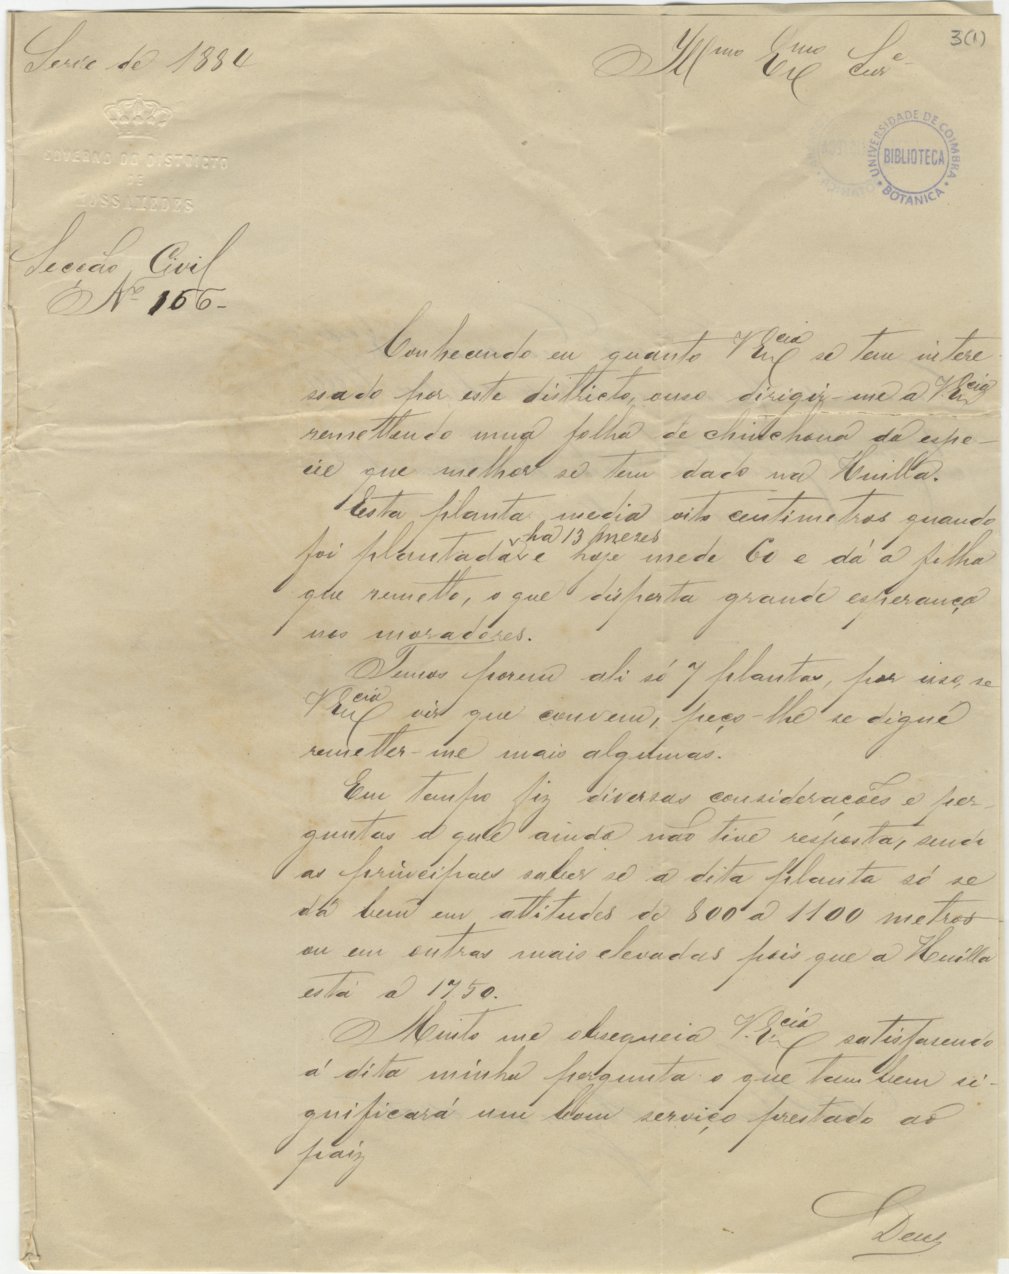 Serie de 1884
Illmo Exmo Snr
3(1)
GOVERNO DO DISTRICTO
DE
MOSSAMEDES
UNIVERSIDADE DE COIMBRA
BIBLIOTECA
BOTANICA
Secção Civil
Nº 166-
Conhecendo eu quanto V. Excia se tem intere-
ssado por este districto, ouso dirigir-me a V. Excia
remettendo uma folha de chinchona da espe-
cie que melhor se tem dado na Huilla.
Esta planta media oito centimetros quando
foi plantada ha 13 mezes e hoje mede 60 e dá a folha
que remetto, o que disperta grande esperança
nos moradores.
Temos porem ali só 7 plantas, por isso, se
V. Excia vir que convem, peço-lhe se digne
remetter-me mais algumas.
Em tempo fiz diversas considerações e per-
guntas a que ainda não tive resposta, sendo
as principaes saber se a dita planta só se
dá bem em altitudes de 800 a 1100 metros
ou em outras mais elevadas pois que a Huilla
está a 1750.
Muito me obsequeia V. Excia satisfasendo
á dita minha pergunta o que tambem si-
gnificará um bom serviço prestado ao
paiz
Deus